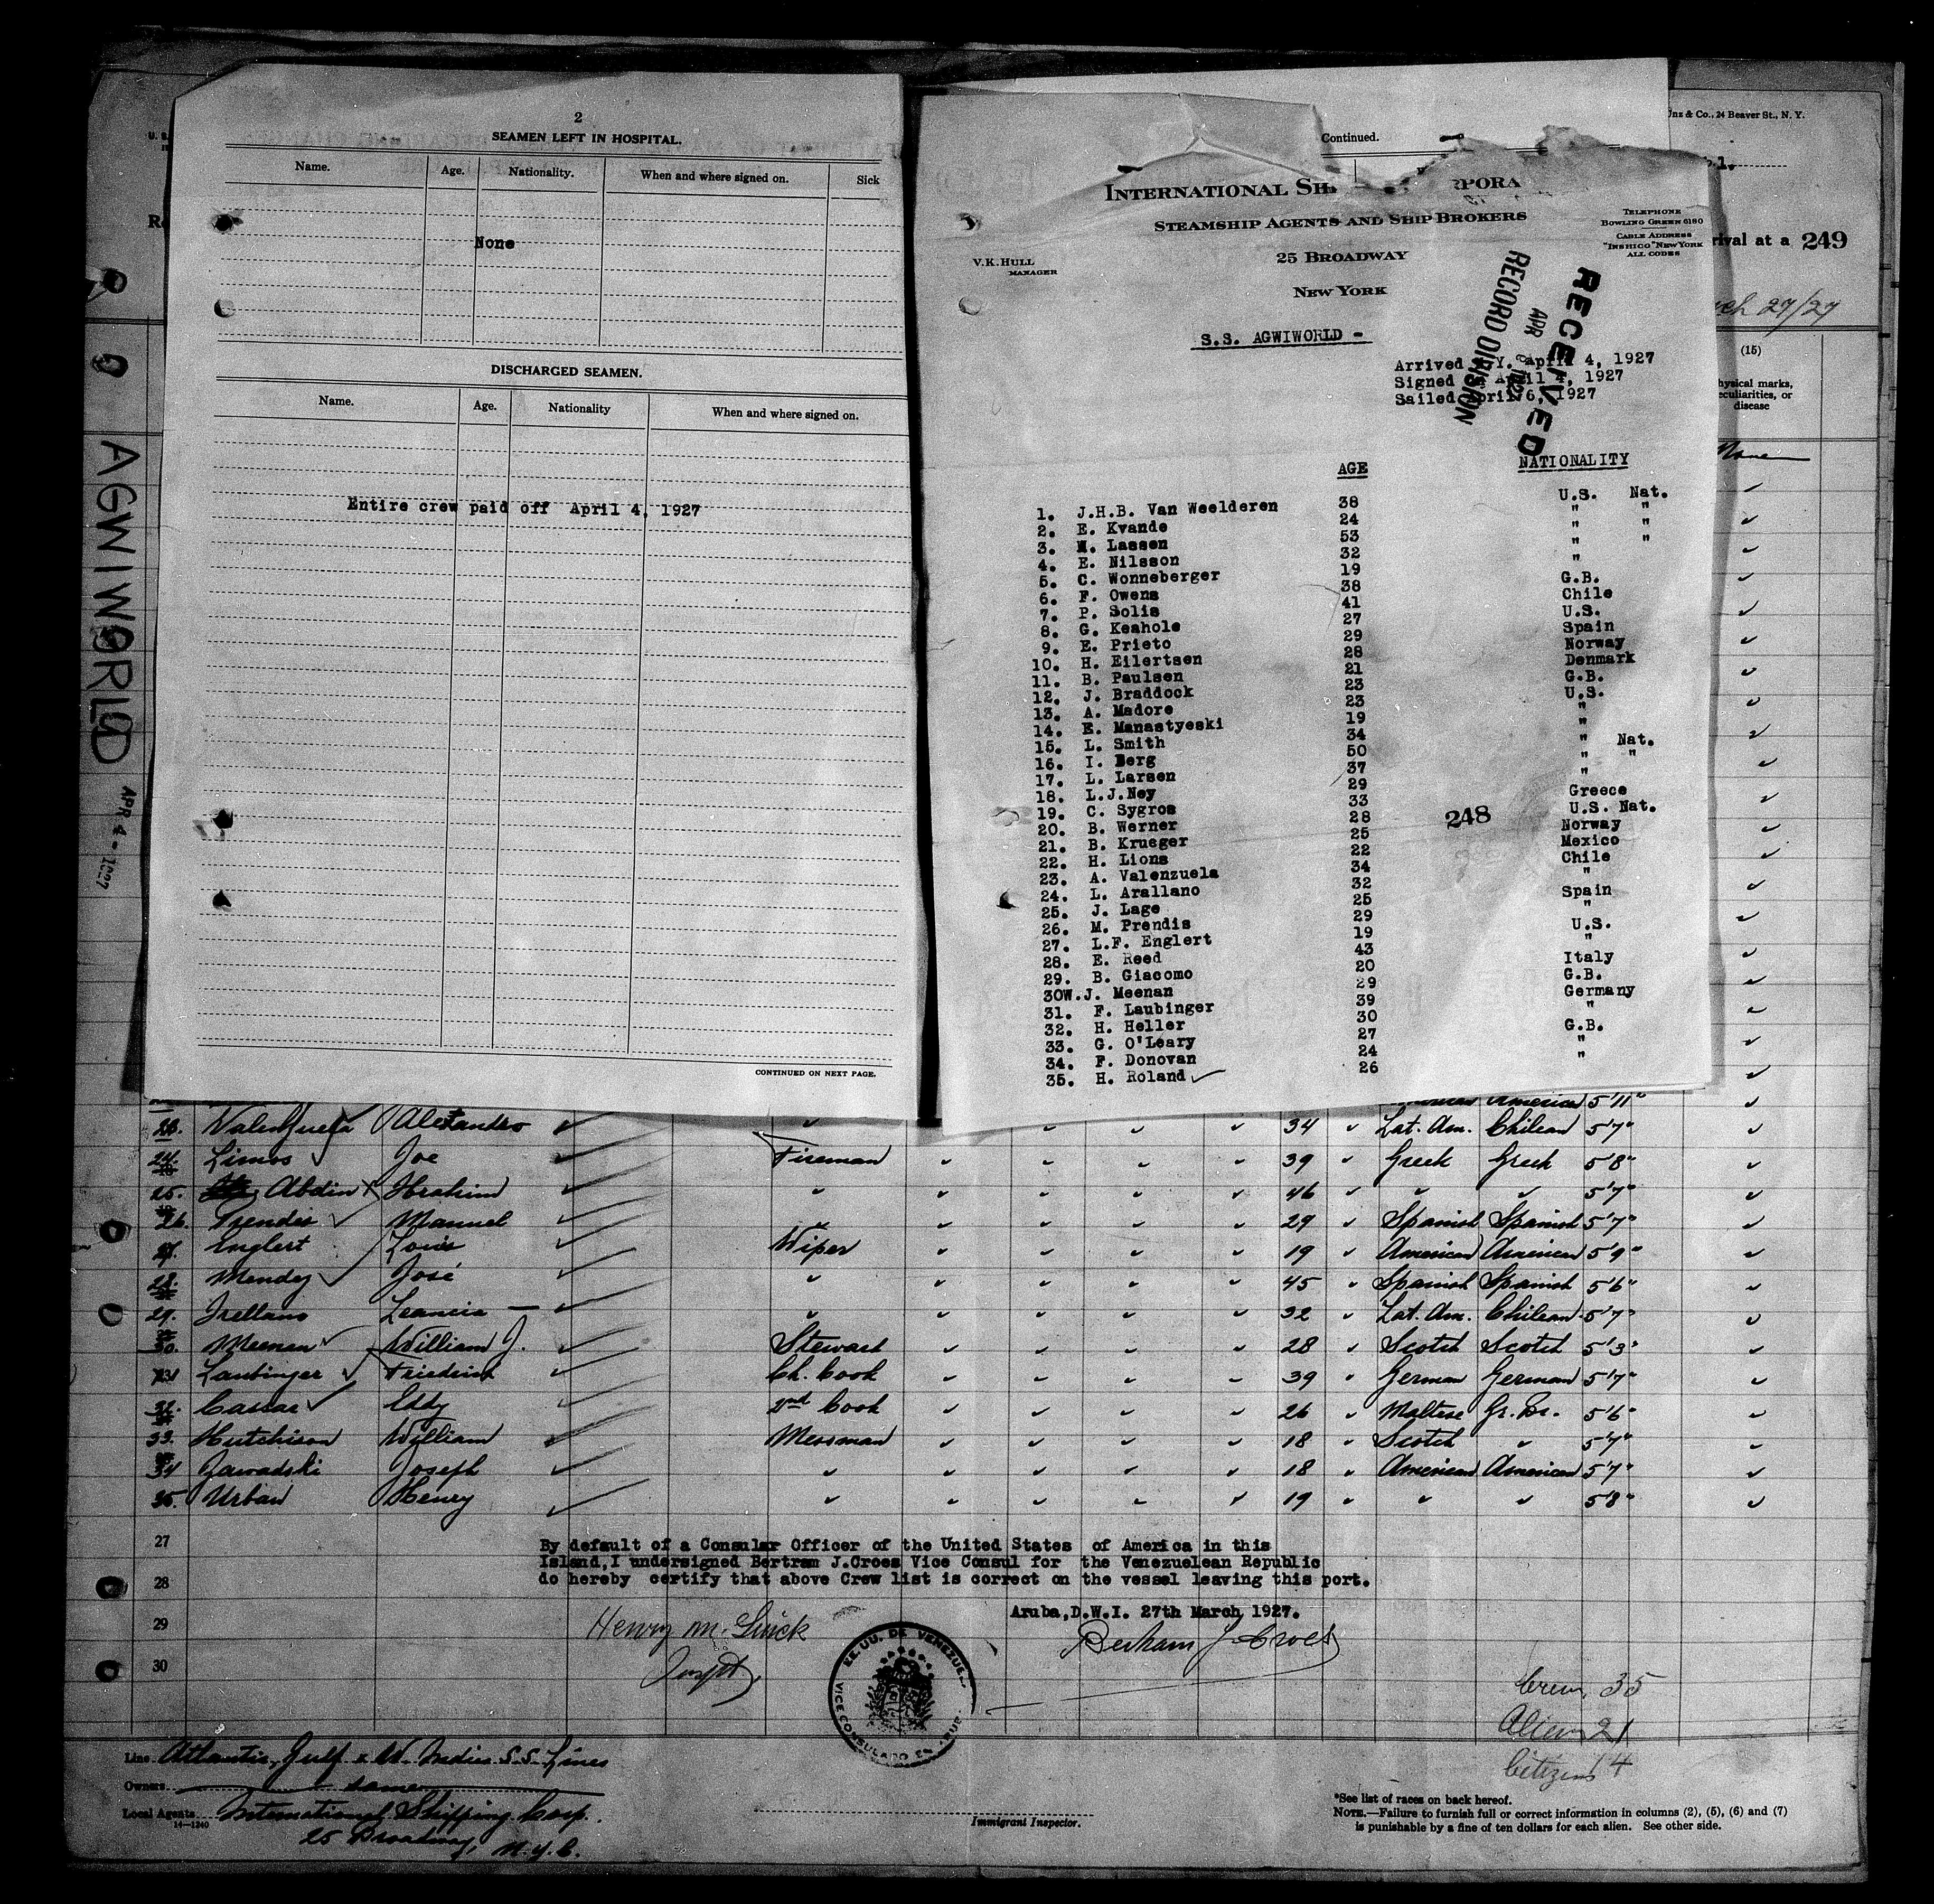 2
SEAMEN LEFT IN HOSPITAL.
Name. Age. Nationality. When and where signed on. Sick
None
DISCHARGED SEAMEN.
Name. Age. Nationality When and where signed on.
Entire crew paid off April 4, 1927
CONTINUED ON NEXT PAGE.
AGWIWORLD
APR 4 - 1927
Continued.
INTERNATIONAL SH PORA
STEAMSHIP AGENTS AND SHIP BROKERS
25 BROADWAY
NEW YORK
V.K. HULL
MANAGER
TELEPHONE
BOWLING GREEN 6180
CABLE ADDRESS
"INSHICO" NEW YORK
ALL CODES
S.S. AGWIWORLD -
RECEIVED
APR
RECORD DIVISION
Arrived Y. April 4, 1927
Signed April 4, 1927
Sailed April 6, 1927
AGE NATIONALITY
1. J.H.B. Van Weelderen 38 U.S. Nat.
2. E. Kvande 24 " "
3. M. Lassen 53 " "
4. E. Nilsson 32 " "
5. C. Wonneberger 19 "
6. F. Owens 38 G.B.
7. P. Solis 41 Chile
8. G. Keahole 27 U.S.
9. E. Prieto 29 Spain
10. H. Eilertsen 28 Norway
11. B. Paulsen 21 Denmark
12. J. Braddock 23 G.B.
13. A. Madore 23 U.S.
14. E. Manastyeski 19 "
15. L. Smith 34 "
16. I. Berg 50 " Nat.
17. L. Larsen 37 " "
18. L.J.Ney 29 "
19. C. Sygros 33 Greece
20. B. Werner 28 U.S. Nat.
21. B. Krueger 25 Norway
22. H. Lions 22 Mexico
23. A. Valenzuela 34 Chile
24. L. Arallano 32 "
25. J. Lage 25 Spain
26. M. Prendis 29 "
27. L.F. Englert 19 U.S.
28. E. Reed 43 "
29. B. Giacomo 20 Italy
30W.J. Meenan 29 G.B.
31. F. Laubinger 39 Germany
32. H. Heller 30 "
33. G. O'Leary 27 G.B.
34. F. Donovan 24 "
35. H. Roland 26 "
248
& Co., 24 Beaver St., N. Y.
rival at a 249
27/27
(15)
hysical marks,
eculiarities, or
disease
None
America 5'11"
23. Valenzuela Alexandro 34 Lat. Am. Chilean 5'7"
24. Limos Joe Fireman 39 Greek Greek 5'8"
25. Abdin Ibrahim 46 5'7"
26. Prendis Manuel 29 Spanish Spanish 5'7"
27. Englert Louis Wiper 19 American American 5'9"
28. Mendez José 45 Spanish Spanish 5'6"
29. Leancio 32 Lat. Am. Chilean 5'7"
30. Meenan William J. Stewart 28 Scotch Scotch 5'3"
31 Laubinger Friedrich Ch. Cook 39 German German 5'7"
32. Eddy 2nd Cook 26 Maltese Gr. Br. 5'6"
33. Hutchison William Messman 18 Scotch 5'7"
34 Zawadski Joseph 18 American American 5'7"
35. Urban Henry 19 5'8"
27
28
29
30
By default of a Consular Officer of the United States of America in this
Island,I undersigned Bertram J.Croes Vice Consul for the Venezuelean Republic
do hereby certify that above Crew list is correct on the vessel leaving this port.
Aruba,D.W.I. 27th March 1927.
Bertram J Croes
EE.UU. DE VENEZUE
VICE CONSULADO EN
Crew 35
Alien 21
Citizens 14
Line Atlantic, Gulf & W. Indies S.S. Lines
Owners same
Local Agents International Shipping Corp.
25 Broadway, N.Y.C.
14—1240
Immigrant Inspector.
*See list of races on back hereof.
NOTE.—Failure to furnish full or correct information in columns (2), (5), (6) and (7)
is punishable by a fine of ten dollars for each alien. See other side.